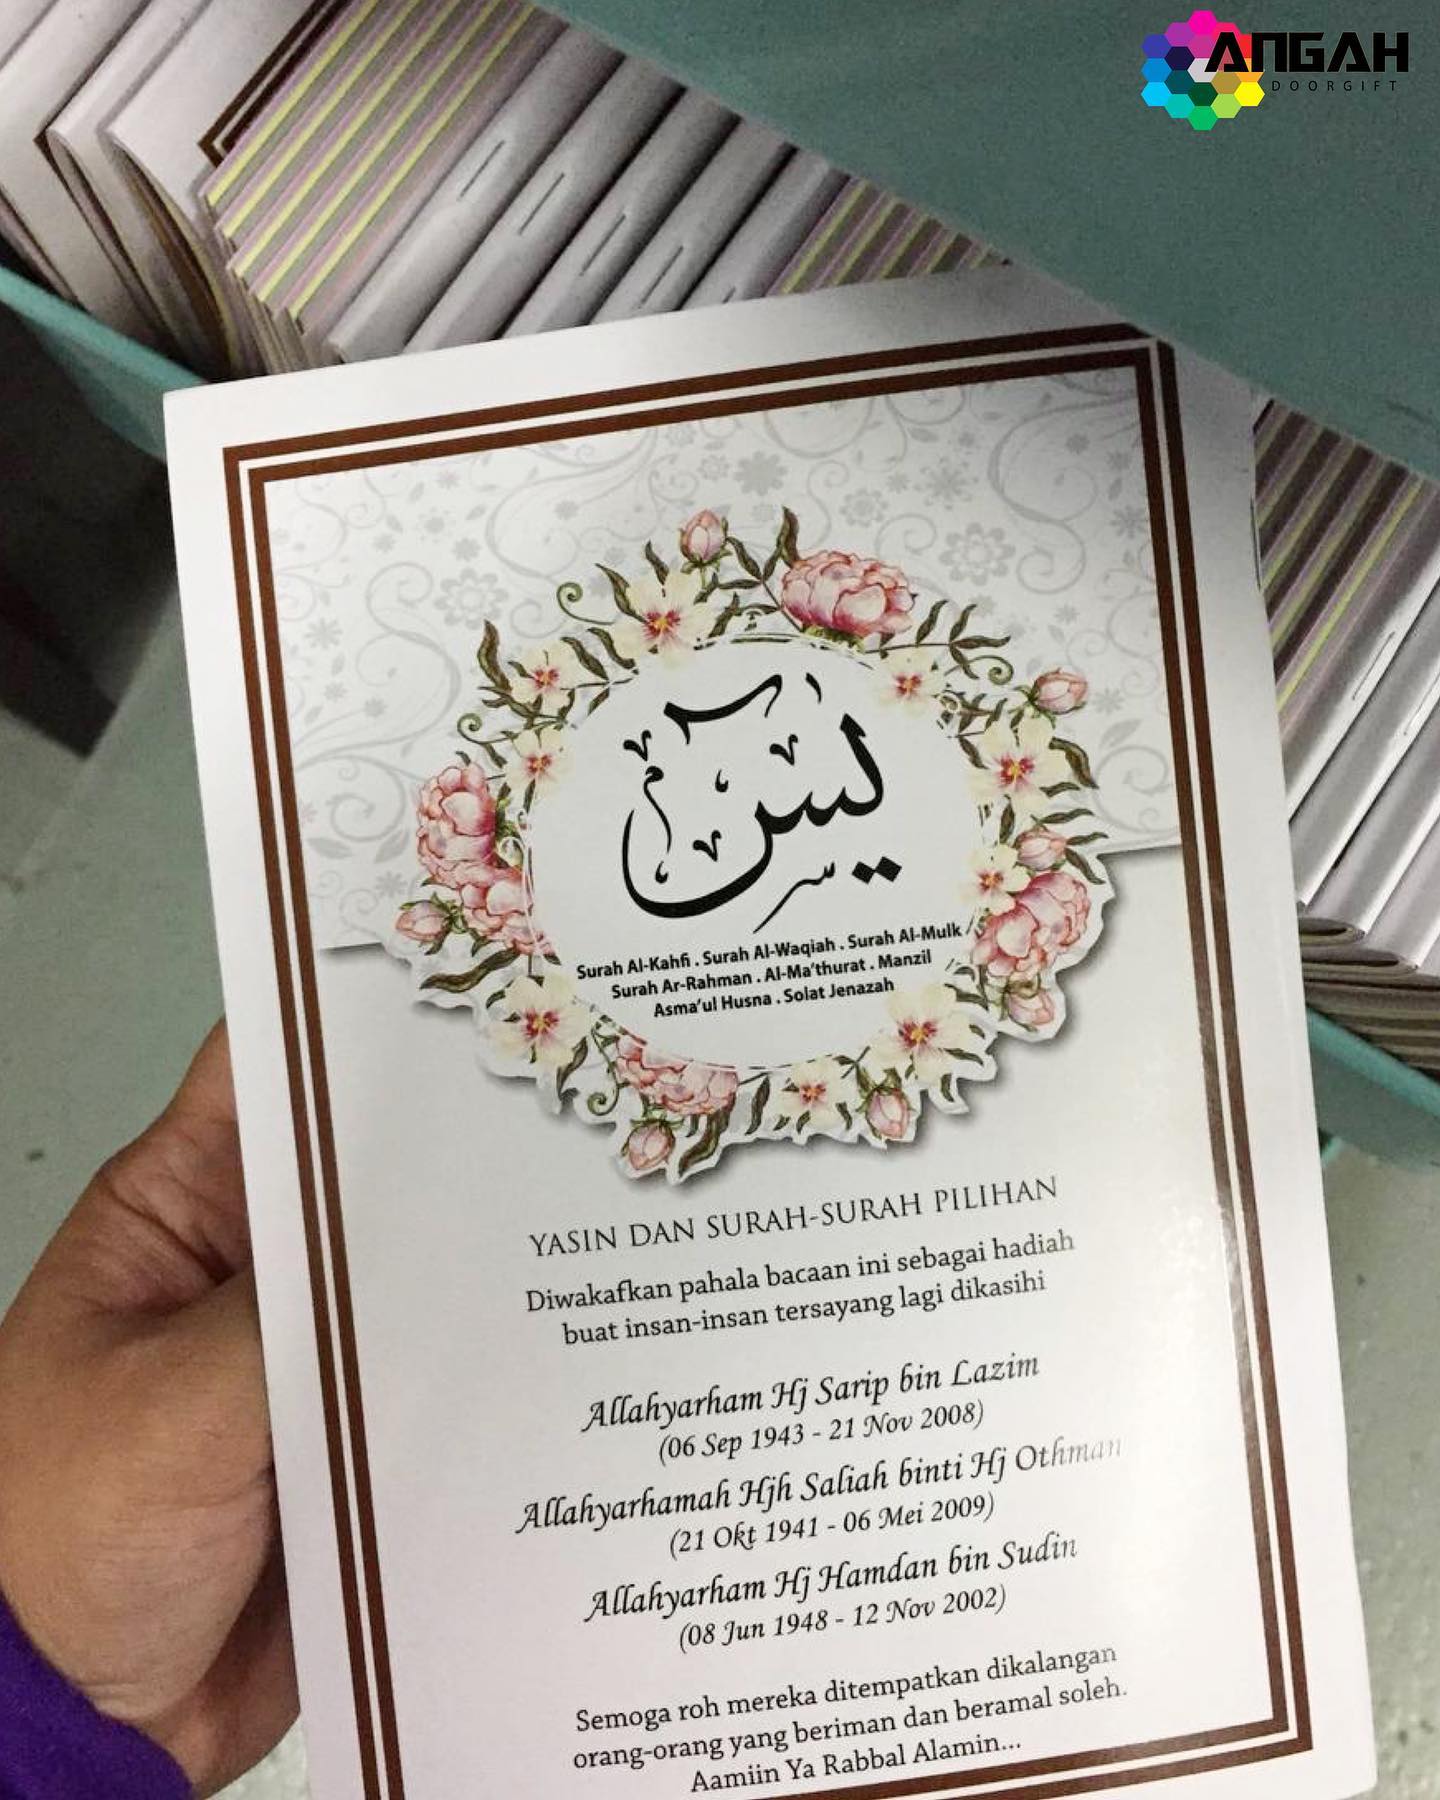 ANGAH
DOORGIFT
يس
Surah Al-Kahfi . Surah Al-Waqiah . Surah Al-Mulk
Surah Ar-Rahman . Al-Ma'thurat . Manzil
Asma'ul Husna . Solat Jenazah
YASIN DAN SURAH-SURAH PILIHAN
Diwakafkan pahala bacaan ini sebagai hadiah
buat insan-insan tersayang lagi dikasihi
Allahyarham Hj Sarip bin Lazim
(06 Sep 1943 - 21 Nov 2008)
Allahyarhamah Hjh Saliah binti Hj Othman
(21 Okt 1941 - 06 Mei 2009)
Allahyarham Hj Hamdan bin Sudin
(08 Jun 1948 - 12 Nov 2002)
Semoga roh mereka ditempatkan dikalangan
orang-orang yang beriman dan beramal soleh.
Aamiin Ya Rabbal Alamin...